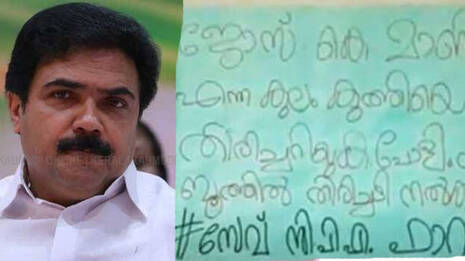 ജോസ് കെ മാണി
എന്ന കുലം കുത്തിയെ
തിരിച്ചറിയുക പോളിം
ബൂത്തിൽ തിരിച്ചടി നൽക
#സേവ് സിപിഎം. പാലാ